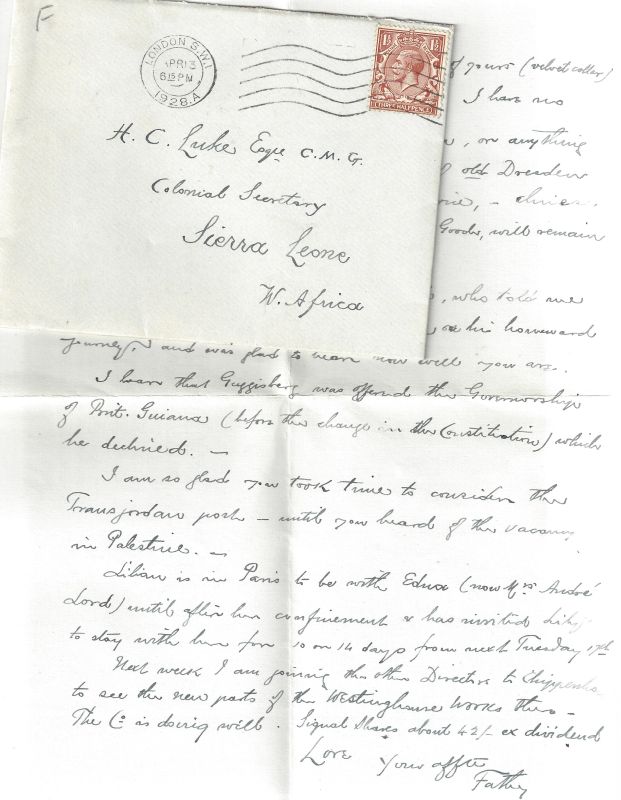 F
LONDON.S.W.1
APR 13
6.15 PM
1928.A
1½ 1½
THREE HALFPENCE
H. C. Luke Esqre C.M.G.
Colonial Secretary
Sierra Leone
W. Africa
of yours (velvet collar)
I have no
, or anything
old Dresden
Goode, will remain
, who told me
on his homeward
journey, and was glad to hear how well you are.
I hear that Guggisberg was offered the Governorship
of Brit. Guiana (before the change in the Constitution) which
he declined. —
I am so glad you took time to consider the
Transjordan post — until you heard of the vacancy
in Palestine. —
Lilian is in Paris to be with Edna (now Mrs André
Lord) until after her confinement & has invited
to stay with her for 10 or 14 days from next Tuesday 17th
Next week I am joining the other Directors to
to see the new parts of the Westinghouse Works there —
The Co is doing well. Signal Shares about 42/- ex dividend
Love
Your affte
Father